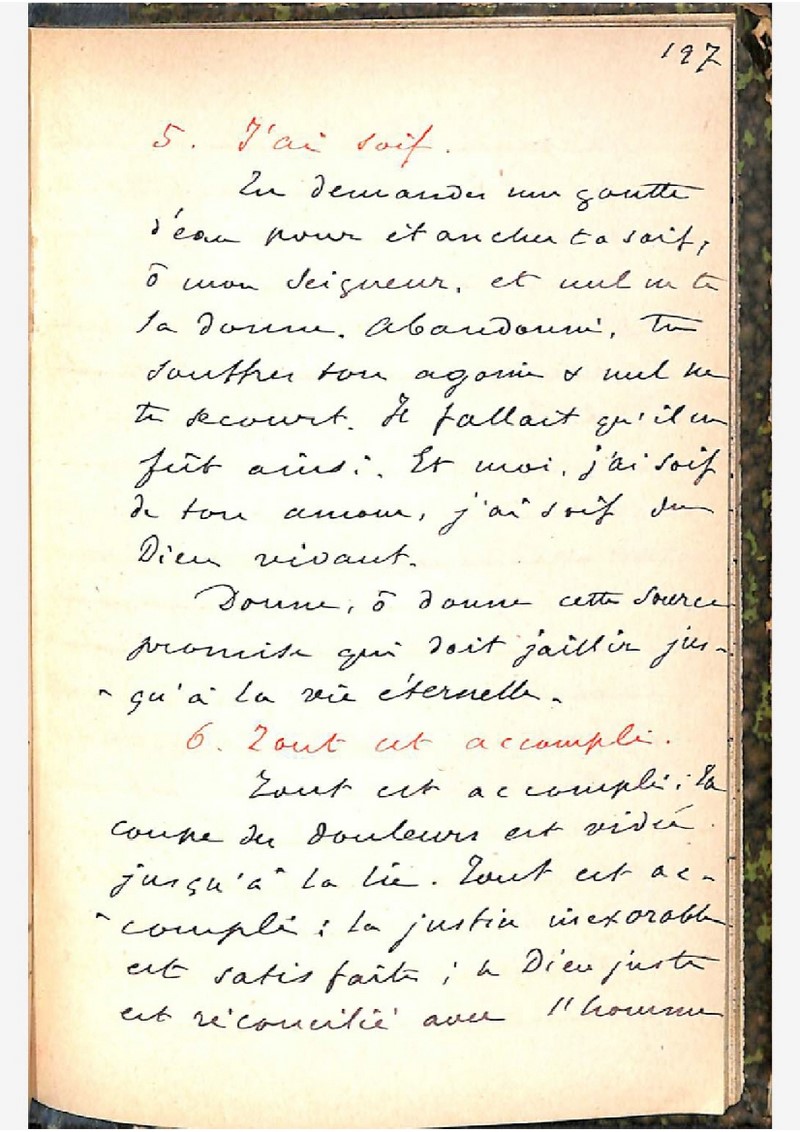 197
5. J'ai soif.
Tu demandes une goutte
d'eau pour étancher ta soif,
ô mon Seigneur, et nul ne te
la donne. Abandonné, tu
souffres ton agonie & nul ne
te secourt. Il fallait qu'il en
fût ainsi. Et moi, j'ai soif
de ton amour, j'ai soif du
Dieu vivant.
Donne, ô donne cette source
promise qui doit jaillir jus-
-qu'à la vie éternelle.
6. Tout est accompli.
Tout est accompli : la
coupe des douleurs est vidée
jusqu'à la lie. Tout est ac-
-compli : la justice inexorable
est satisfaite ; le Dieu juste
est réconcilié avec l'homme